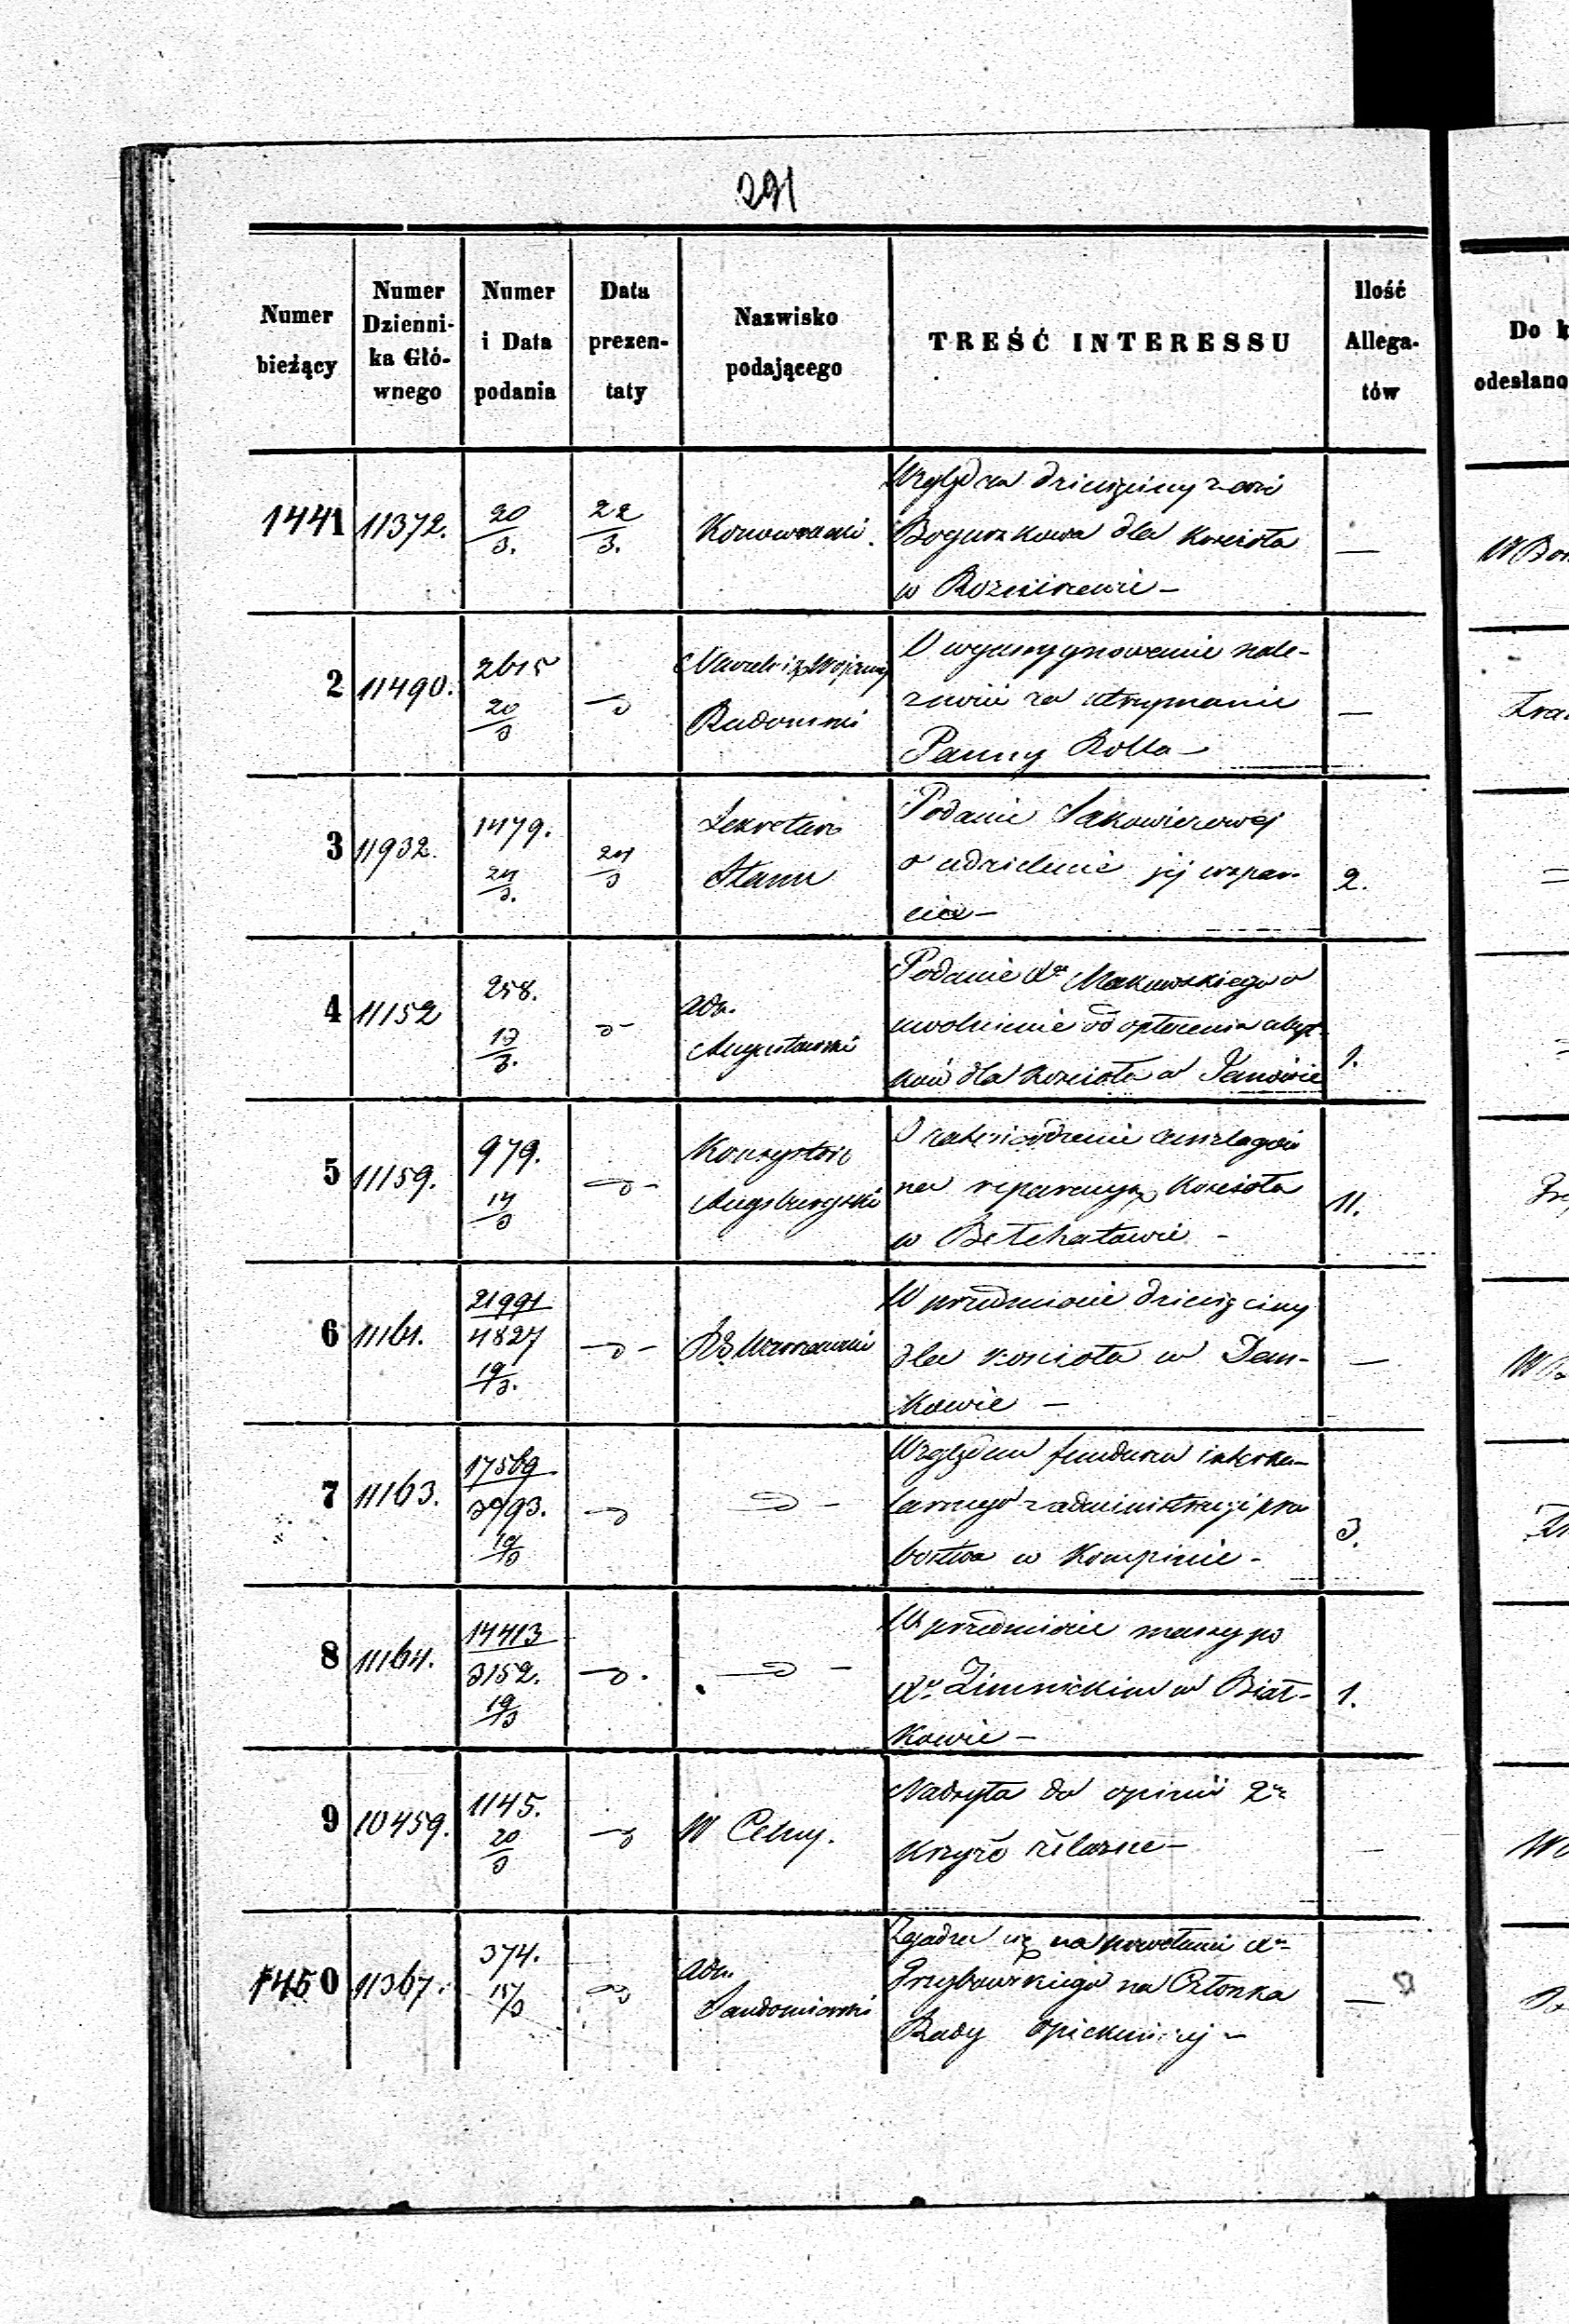 291
Numer bieżący
Numer Dzienni- ka Głó- wnego
Numer i Data podania
Data prezen- taty
Nazwisko podającego
TREŚĆ INTERESSU
Ilość Allega- tów
Do k
odesłano
1441 11372. 20/3. 22/3.
dziesięciny z wsi
Boguszkowa dla Kościoła —
w Rozniszewie —
2 11490. 2615 20/3
Radomski
O wyassygnowanie nale-
za utrzymanie —
Panny Rolla —
3 11932. 1479. 24/3. 24/3
Sekretarz
Stanu
Podanie
o udzielenie jej wspar- 2.
cia —
4 11152 258. 13/3.
Adm.
Augustowski
Podanie Xa Makowskiego o
uwolnienie od opłacenia
dla Kościoła w Janowie 1.
5 11159. 979. 14/3
Konsystorz
Augsburgski
O zatwierdzenie anszlagów
na reparacyą Kościoła 11.
w Bełchatowie -
6 11161. 21991/4827 19/3.
RG Warszawski
W przedmiocie dziesięciny
dla kościoła w Dan- —
kowie —
7 11163. 17569/3093. 19/3
Względem funduszu interka-
larnego z administracyi pro
bostwa w Kompinie - 3.
8 11164. 14413/3152. 19/3
W przedmiocie massy po
Xu Zimnickim w Biał- 1.
kowie —
9 10459. 1145. 20/3
W Celny.
Nadsyła do opinii 2a
krzyże żelazne — —
1450 11367. 374. 15/3
Adm.
Sandomierski
Zgadza się na powołanie Xa
Grzybowskiego na Członka —
Rady Opiekuńczej —